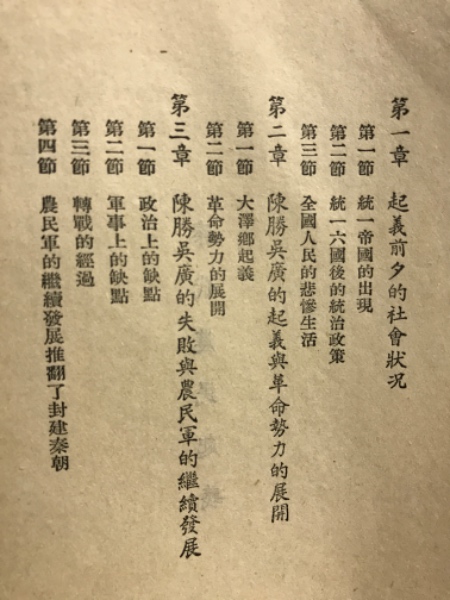 第一章 起義前夕的社會狀况
第一節 統一帝國的出現
第二節 統一六國後的統治政策
第三節 全國人民的悲慘生活
第二章 陳勝吳廣的起義與革命勢力的展開
第一節 大澤鄉起義
第二節 革命勢力的展開
第三章 陳勝吳廣的失敗與農民軍的繼續發展
第一節 政治上的缺點
第二節 軍事上的缺點
第三節 轉戰的經過
第四節 農民軍的繼續發展推翻了封建秦朝